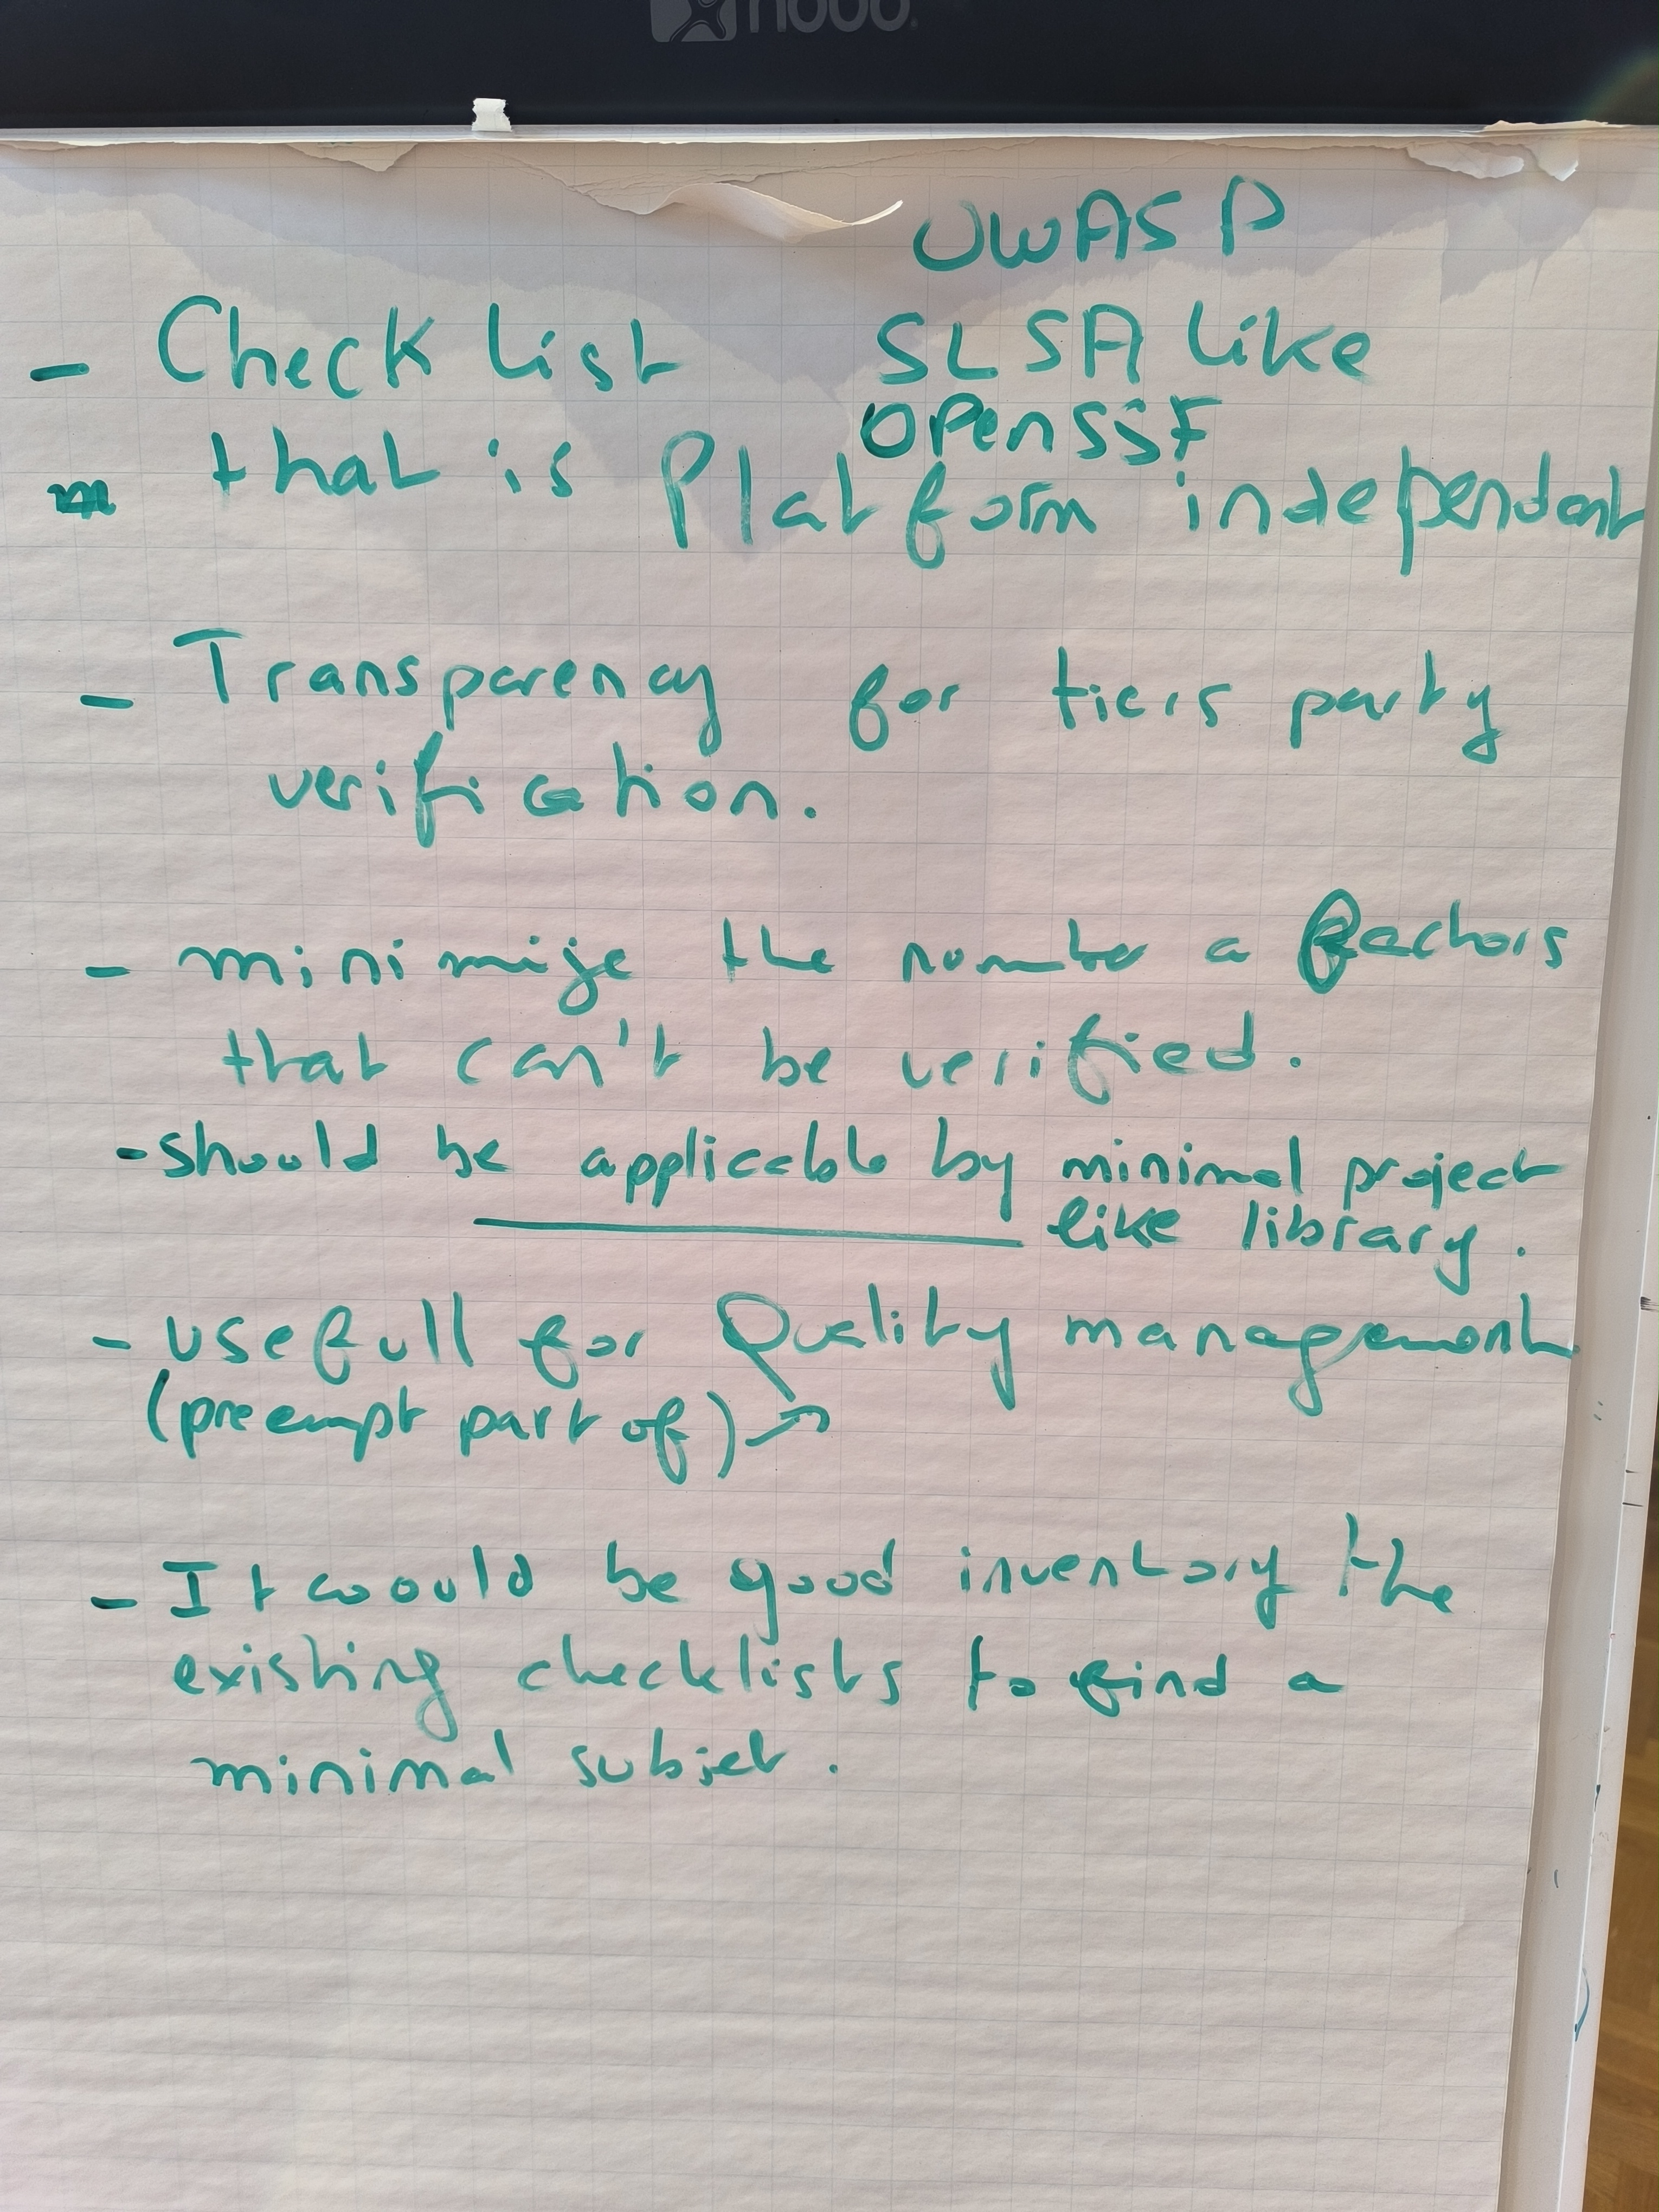 nobo
UWASP
- Check list SLSA like
OpenSSF
that is Platform independent
- Transparency for tiers party
verification.
- minimize the number a factors
that can't be verified.
- should be applicable by minimal project
like library.
- usefull for Quality management
(preempt part of)
- It woould be good inventory the
existing checklists to find a
minimal subjet.